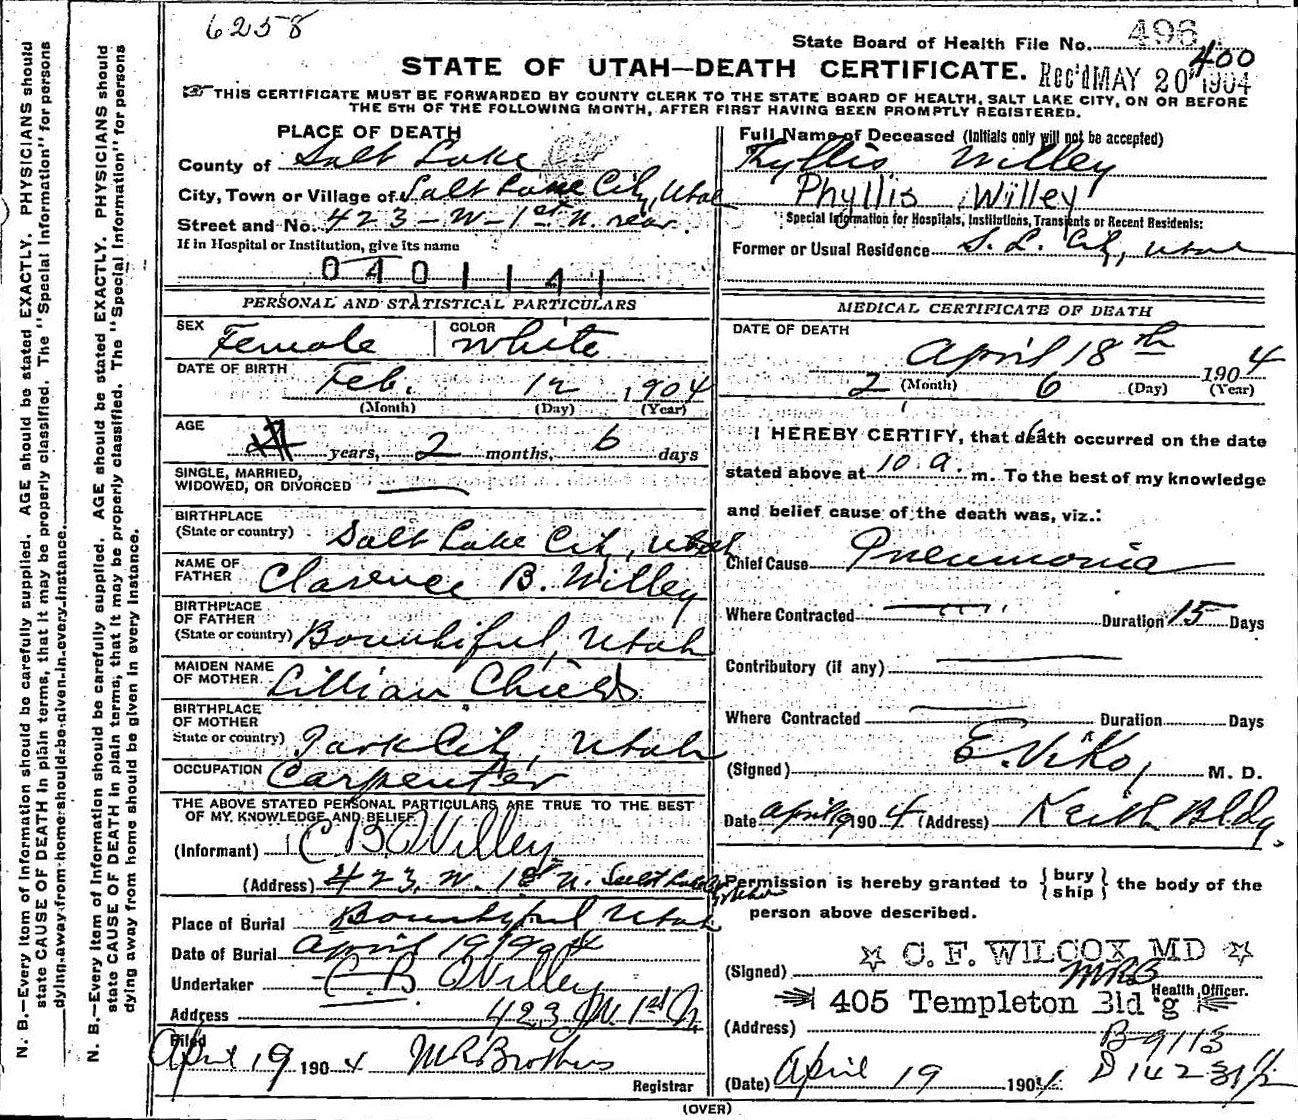 6258
State Board of Health File No. 496
400
STATE OF UTAH—DEATH CERTIFICATE.
Rec'd MAY 20 1904
THIS CERTIFICATE MUST BE FORWARDED BY COUNTY CLERK TO THE STATE BOARD OF HEALTH, SALT LAKE CITY, ON OR BEFORE
THE 5TH OF THE FOLLOWING MONTH, AFTER FIRST HAVING BEEN PROMPTLY REGISTERED.
N. B.—Every item of information should be carefully supplied. AGE should be stated EXACTLY. PHYSICIANS should
state CAUSE OF DEATH in plain terms, that it may be properly classified. The "Special Information" for persons
dying away from home should be given in every instance.
N. B.—Every item of information should be carefully supplied. AGE should be stated EXACTLY. PHYSICIANS should
state CAUSE OF DEATH in plain terms, that it may be properly classified. The "Special Information" for persons
dying away from home should be given in every instance.
PLACE OF DEATH
County of Salt Lake
City, Town or Village of Salt Lake City, Utah
Street and No. 423 - W - 1st N. rear.
If in Hospital or Institution, give its name
0401141
PERSONAL AND STATISTICAL PARTICULARS
SEX Female COLOR White
DATE OF BIRTH Feb. 12 1904
(Month) (Day) (Year)
AGE years, 2 months, 6 days
SINGLE, MARRIED,
WIDOWED, OR DIVORCED
BIRTHPLACE
(State or country) Salt Lake City, Utah
NAME OF
FATHER Clarence B. Willey
BIRTHPLACE
OF FATHER
(State or country) Bountiful, Utah
MAIDEN NAME
OF MOTHER Lillian Childs
BIRTHPLACE
OF MOTHER
State or country) Park City, Utah
OCCUPATION Carpenter
THE ABOVE STATED PERSONAL PARTICULARS ARE TRUE TO THE BEST
OF MY KNOWLEDGE AND BELIEF
(Informant) C B Willey
(Address) 423. W. 1st N. Salt Lake City Utah
Place of Burial Bountiful Utah
Date of Burial April 19 1904
Undertaker C. B Willey
Address 423 W. 1st N
Filed
April 19 1904 M R Brothers
Registrar
Full Name of Deceased (Initials only will not be accepted)
Phyllis Willey
Phyllis Willey
Special Information for Hospitals, Institutions, Transients or Recent Residents:
Former or Usual Residence S. L. City, Utah
MEDICAL CERTIFICATE OF DEATH
DATE OF DEATH
April 18th 1904
2 (Month) 6 (Day) (Year)
I HEREBY CERTIFY, that death occurred on the date
stated above at 10 a. m. To the best of my knowledge
and belief cause of the death was, viz.:
Chief Cause Pneumonia
Where Contracted Duration 15 Days
Contributory (if any)
Where Contracted Duration Days
(Signed) E. Viko, M. D.
Date April 19 1904 (Address) Keith Bldg.
Permission is hereby granted to {bury ship} the body of the
person above described.
(Signed) C. F. WILCOX MD
MRB Health Officer.
405 Templeton Bld'g
(Address)
B-9113
D 142 31/2
(Date) April 19 1904
(OVER)